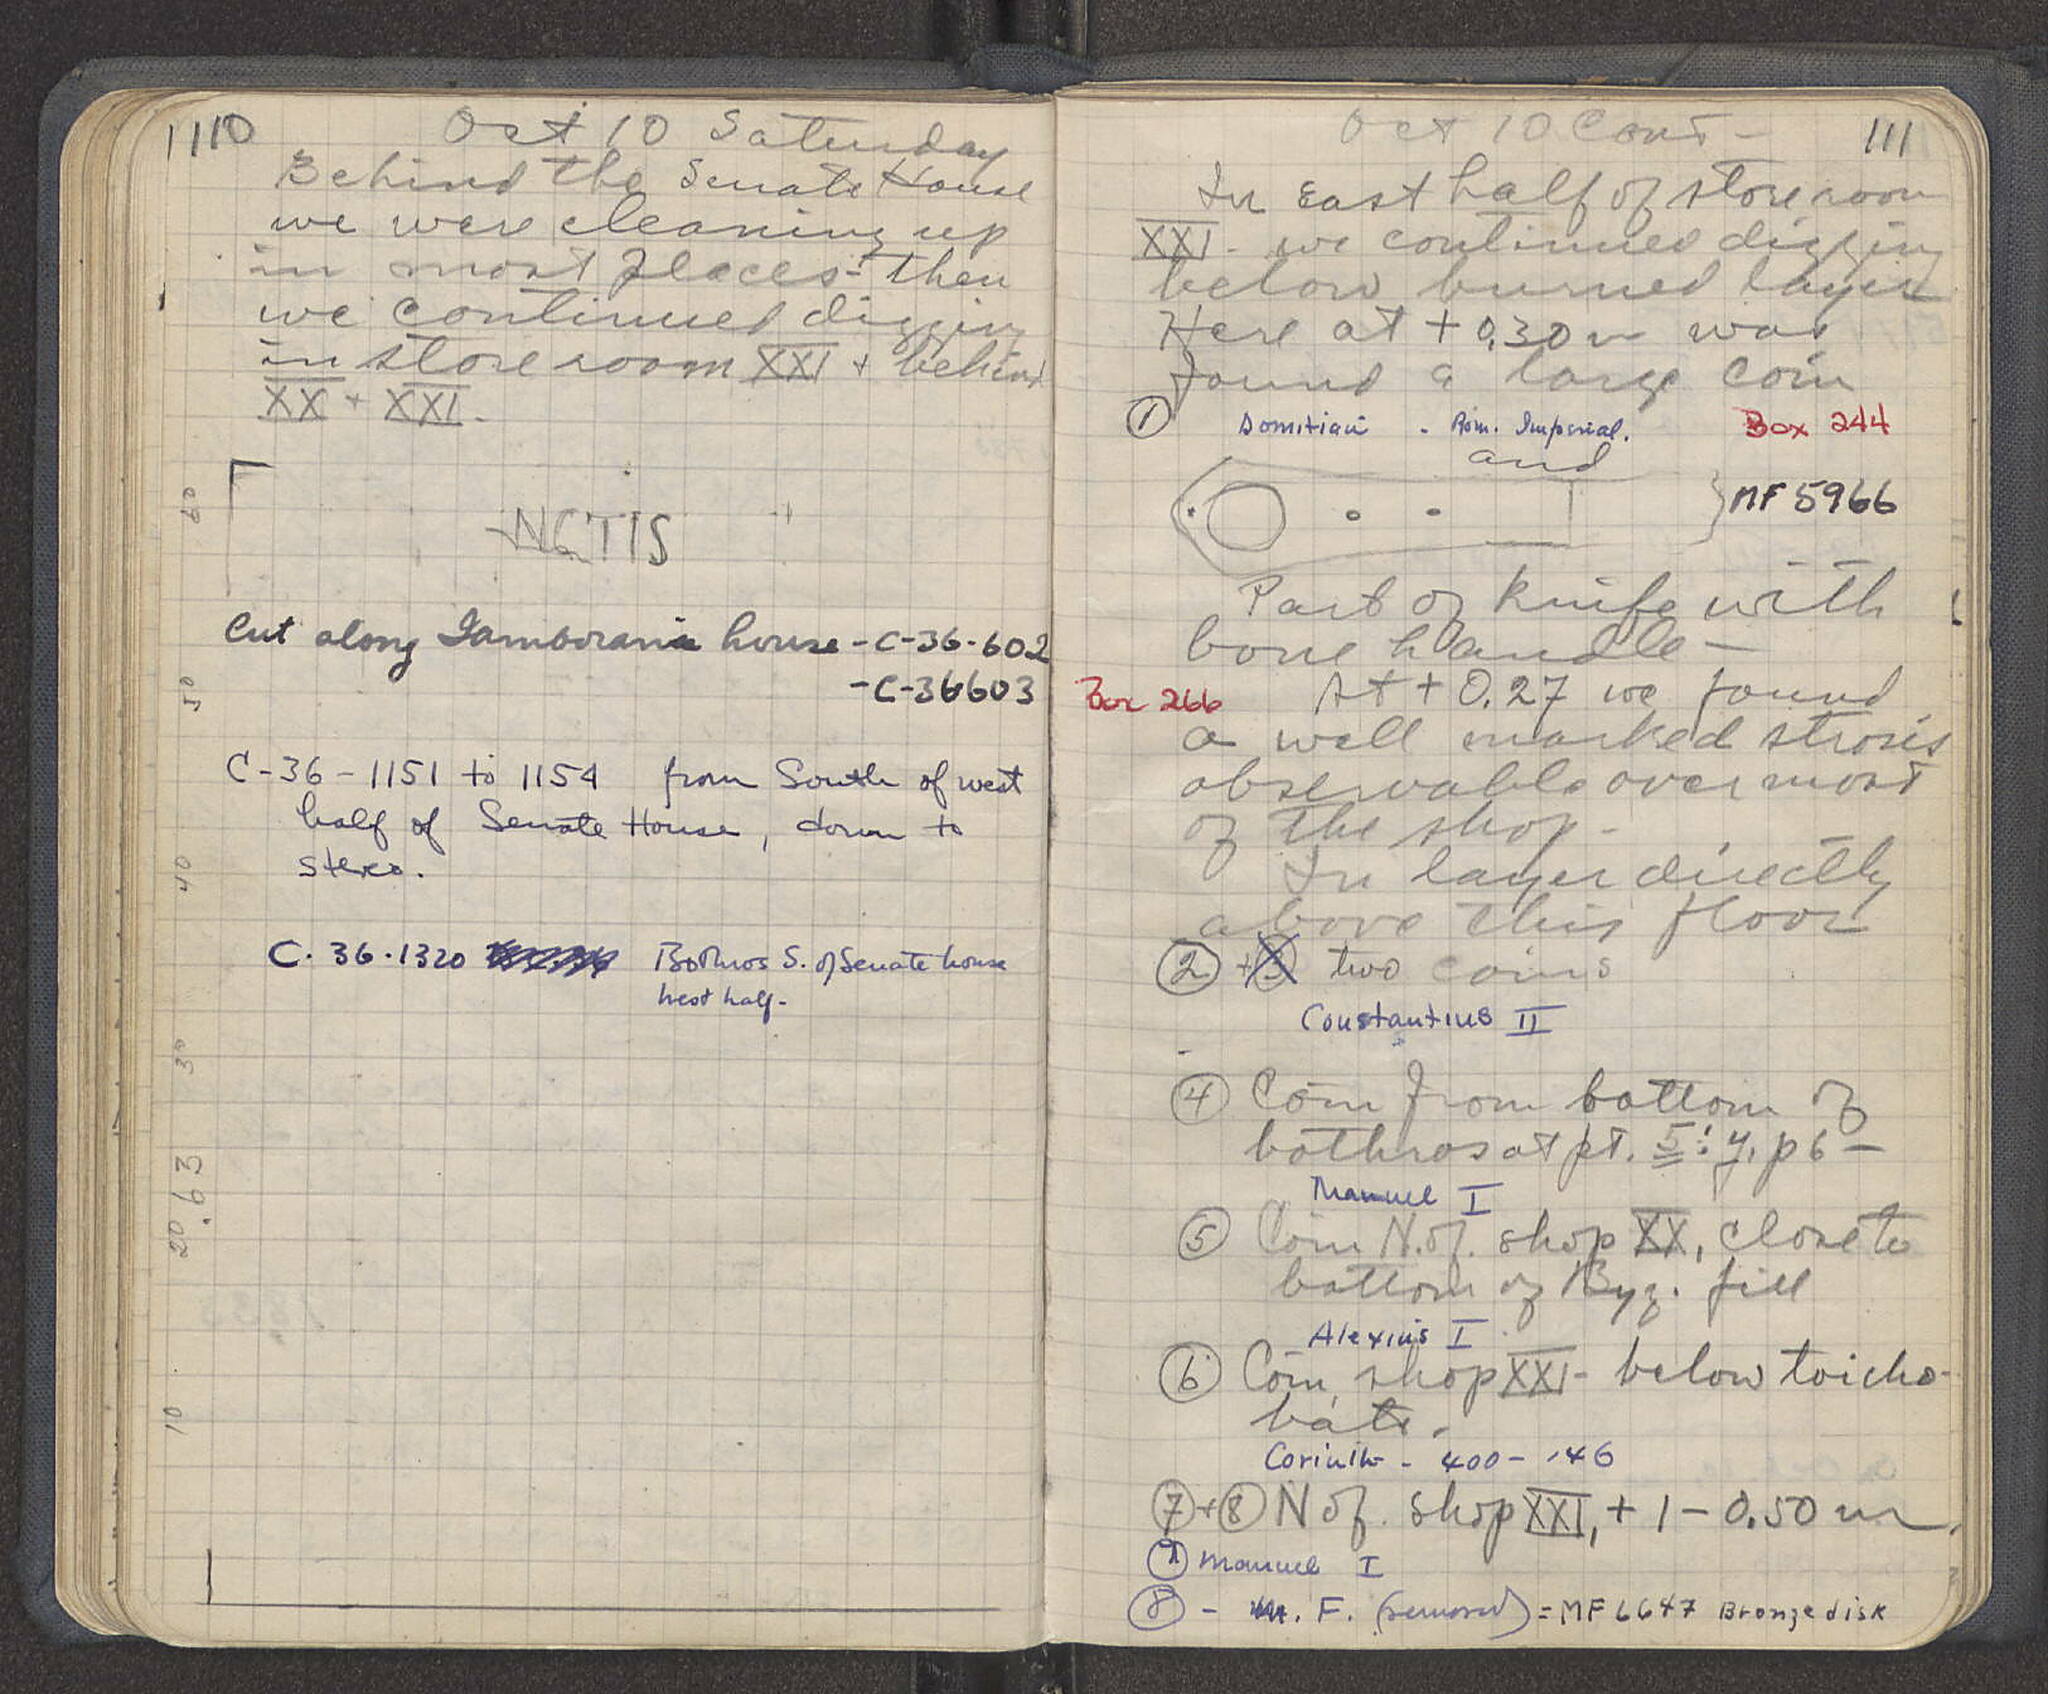 1110
Oct 10 Saturday
Behind the Senate House
we were cleaning up
in most places - then
we continued digging
in storeroom XXI + behind
XX + XXI.
NCTIS
Cut along Iamborani house - C-36-602
- C-36603
C-36-1151 to 1154 from South of west
half of Senate House, down to
stereo.
C. 36.1320 Bothros S. of Senate house
West half-
60
50
40
30
20
10
111
Oct 10 Cont-
In East half of storeroom
XXI - we continued digging
below burned layer
Here at +0.30 m was
found a large coin
① Domitian - Rom. Imperial. Box 244
and
} MF 5966
Part of knife with
bone handle -
Box 266 At + 0.27 we found
a well marked strosis
observable over most
of the shop -
In layer directly
above this floor
② + ③ two coins
Constantius II
④ Coin from bottom of
bothros at pt. 5:4, p 6 -
Manuel I
⑤ Coin N. of. shop XX, close to
bottom of Byz. fill
Alexius I
⑥ Coin, shop XXI - below toicho-
bate.
Corinth - 400 - 146
⑦ + ⑧ N of. shop XXI, + 1 - 0.50 m.
⑦ Manuel I
⑧ - M. F. (removed) = MF 6647 Bronze disk